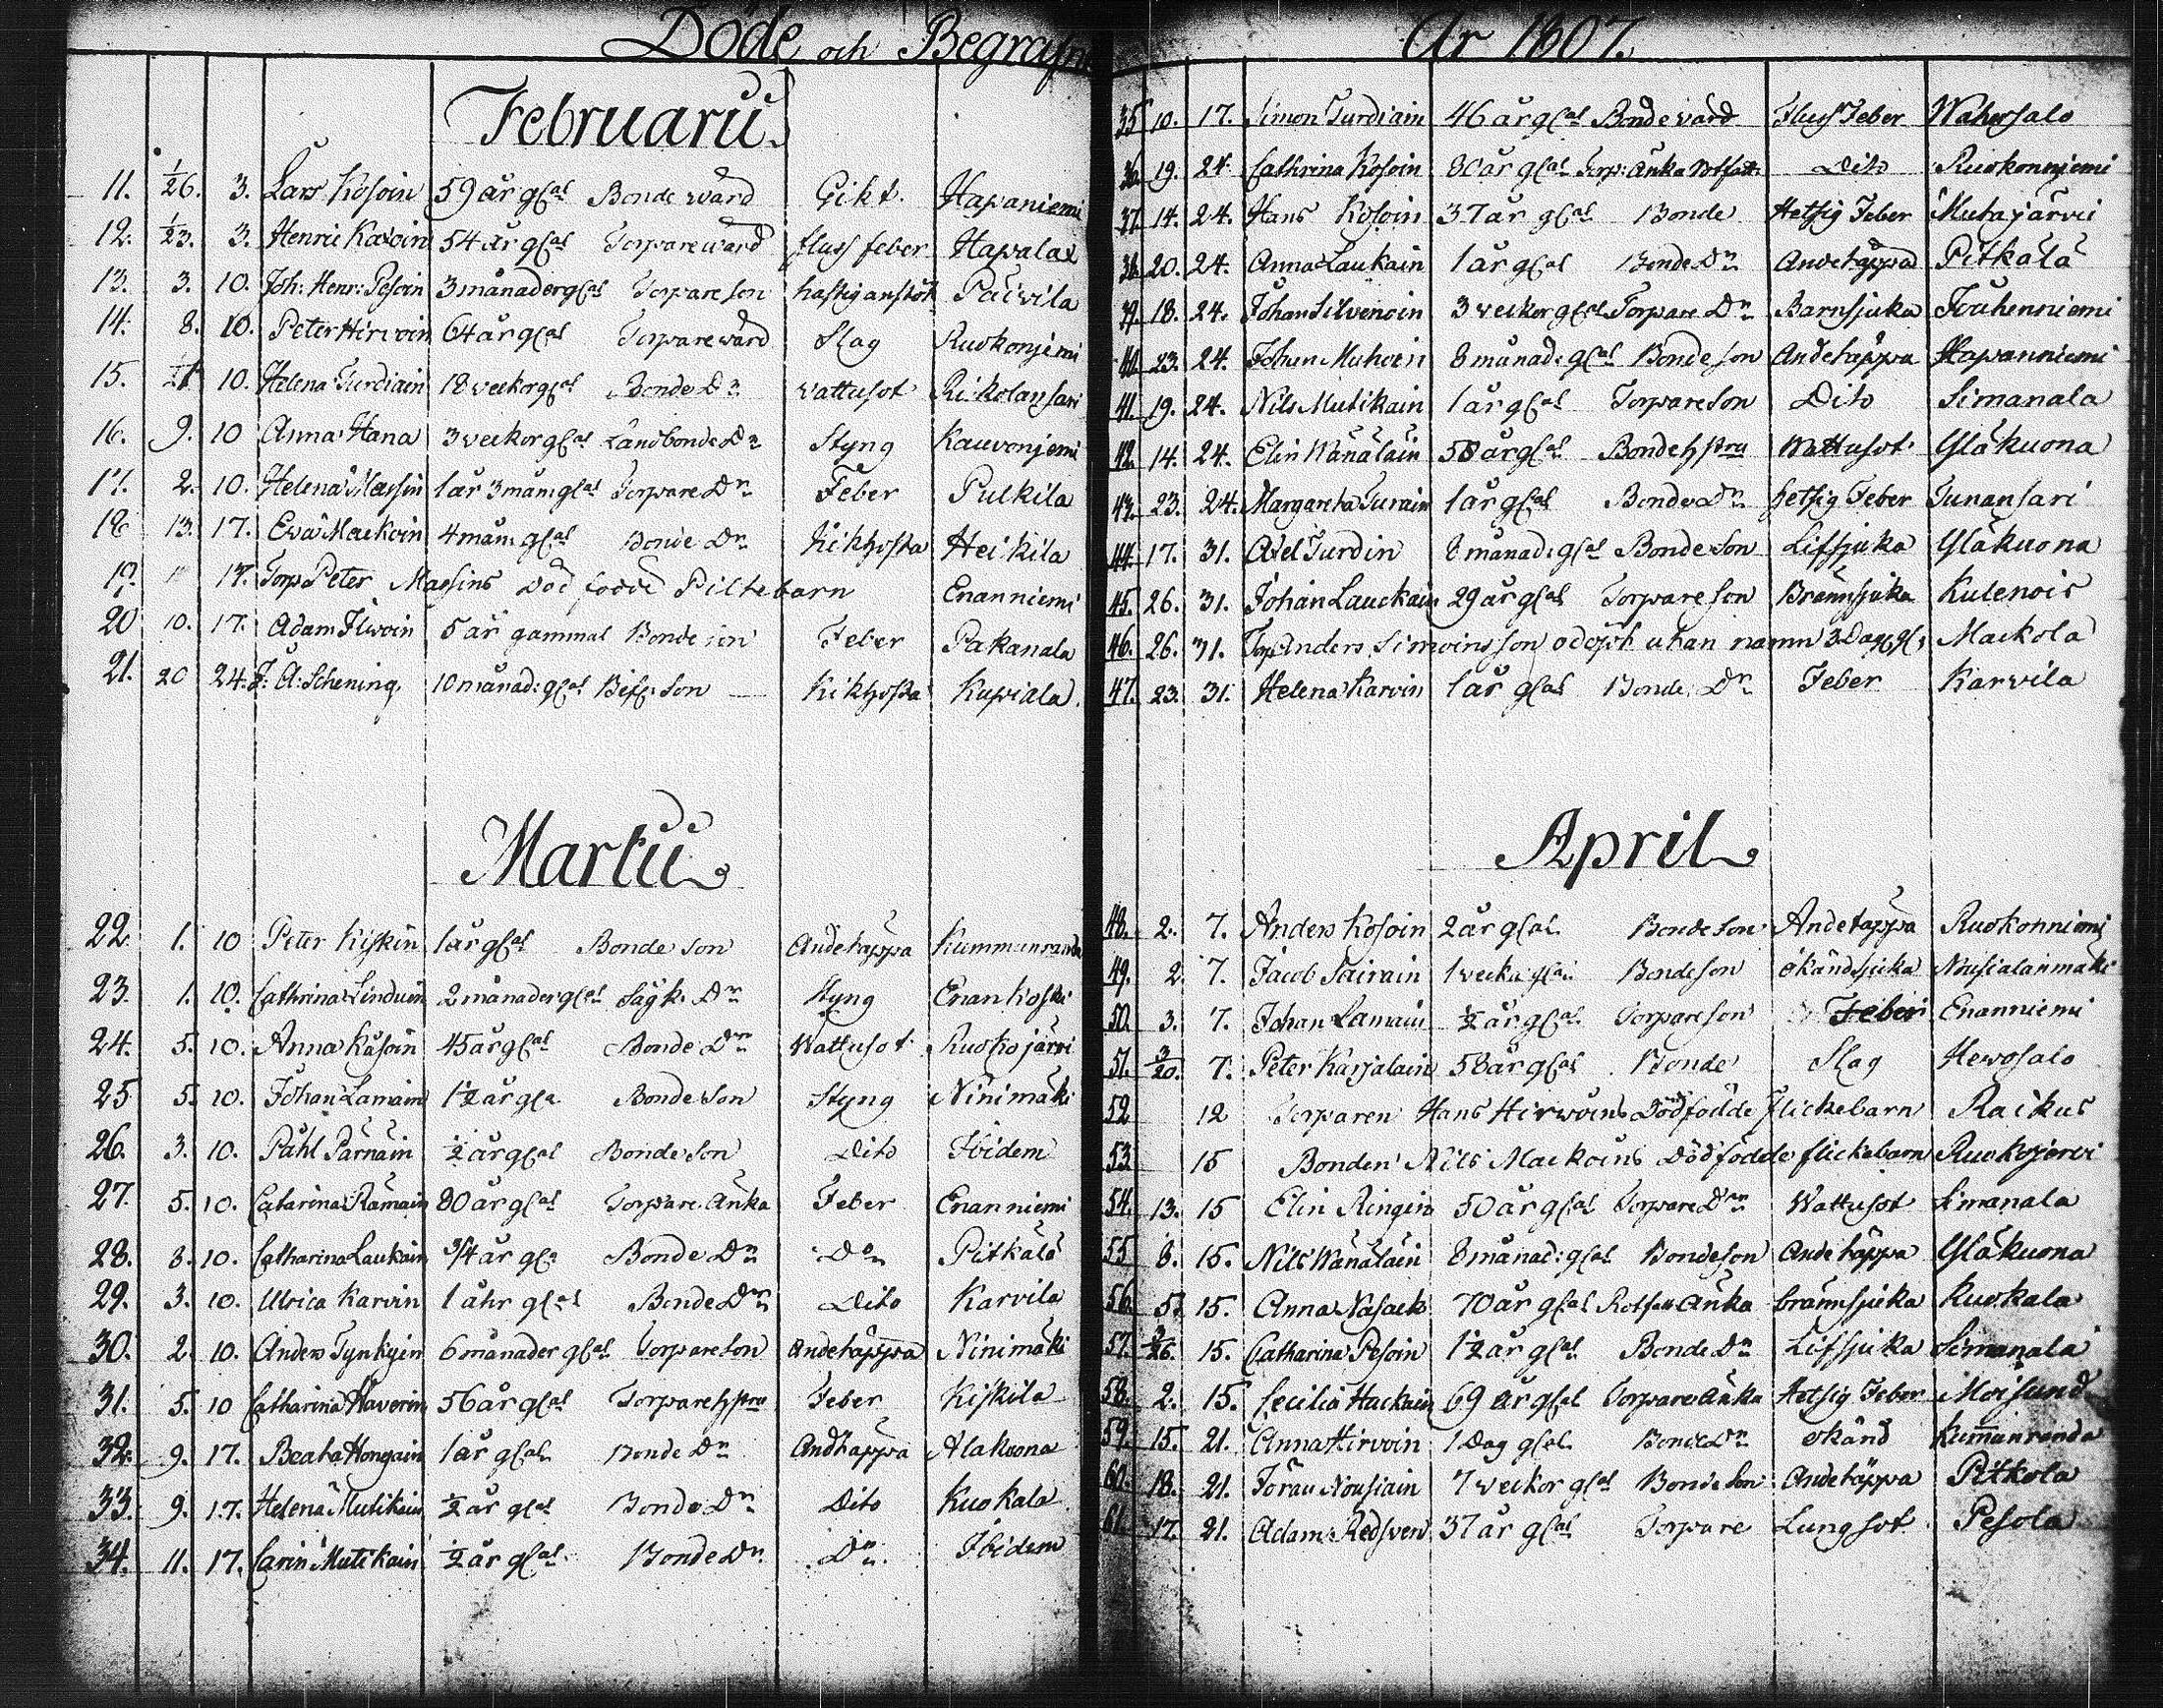 Döde och Begrafne
Februarii
11. 1/26. 3. Lars Kosoin 59 år gl:al Bonde ward Gikt. Hapaniemi
12. 1/23. 3. Henric Kosoin 54 år gl:al Torpare ward fluss feber Hapalax
13. 3. 10. Joh: Henr: Pesoin 3 månader gl:al Torpare son hastig anstöt Päivila
14. 8. 10. Peter Hirvoin 64 år gl:al Torpare ward Slag Ruokonjemi
15. 10. Helena Turdiain 18 veckor gl:al Bonde Dn vattusot Rikolansari
16. 9. 10 Anna Hana 3 veckor gl:al Landbonde Dn Styng Kauvonjemi
17. 2. 10. Helena Massin 1 år 3 mån: gl:al Torpare Dn Feber Pulkila
18 13. 17. Eva Mackoin 4 mån: gl:al Bonde Dn Kikhosta Heikila
19. 17. Torp: Peter Massins död födde Piltebarn Enanniemi
20 10. 17. Adam Ilwoin 5 år gammal Bonde son Feber Pakanala
21. 20 24. J: A: Schening 10 månad: gl:al Bisc: Son — Kikhosta Kupiala.
Martii
22. 1. 10 Peter Kiskin 1 år gl:al Bonde son Andetäppa Kummunranda
23. 1. 10. Cathrina Linduin 2 månader gl:al Sågk: Dn Styng Enankoski
24. 5. 10. Anna Kåsoin 45 år gl:al Bonde Dn Wattusot Ruokojärvi
25 5. 10. Johan Lamain 1½ år gl:a Bonde Son Styng Ninimäki
26. 3. 10. Påhl Pärnäin ½ år gl:al Bonde Son Dito Ibidem
27. 5. 10. Catarina Rämäin 80 år gl:al Torpare Änka Feber Enanniemi
28. 8. 10. Catharina Laukain 3/4 år gl:a Bonde Dn Do Pitkälä
29. 3. 10. Ulrica Karvin 1 åhr gl:al Bonde Dn Dito Karvila
30. 2. 10. Anders Tynkyin 6 månader gl:al Torpare Son Andetäppa Ninimäki
31. 5. 10 Catharina Haverin 56 år gl:al Torpare Hstru Feber Kiskila
32. 9. 17. Beata Hongain 1 år gl:al Bonde Dn Andtäppa Alakuona
33. 9. 17. Helena Mutikain ½ år gl:al Bonde Dn Dito Kuokala
34. 11. 17. Carin Mutikain ½ år gl:al Bonde Dn Do Ibidem
År 1807.
35 10. 17. Simon Turdiain 46 år gl:al Bonde vård Fluss Feber Wahersalo
36. 19. 24. Cathrina Kosoin 80 år gl:al Torp: Änka Rotfatt: Dito Ruokonnjemi
37. 14. 24. Hans Kosoin 37 år gl:al Bonde Hetsig Feber Mutajärvi
38. 20. 24. Anna Laukain 1 år gl:al Bonde Dn Andetäppa Pitkälä
39. 18. 24. Johan Silvenoin 3 veckor gl:al Torpare Dn Barnsjuka Jouhenniemi
40. 23. 24. Johan Muhoin 8 månad: gl:al Bonde son Andetäppa Hapanniemi
41. 19. 24. Nils Mutikain 1 år gl:al Torpare Son Dito Simanala
42. 14. 24. Elin Wänäläin 58 år gl:al Bonde Hstru Wattusot Yläkuona
43. 23. 24. Margareta Turain 1 år gl:al Bonde Dn hetsig Feber Tunansari
44. 17. 31. Axel Turdin 8 månad: gl:al Bonde Son Lifsjuka Yläkuona
45. 26. 31. Johan Lauckain 29 år gl:al Torpare Son Brännsjuka Kulenois
46. 26. 31. Torp: Anders Simoins son odöpt utan namn 3 Dag: gl: Mackola
47. 23. 31. Helena Karvin 1 år gl:al Bonde Dn Feber Karvila
April
48. 2. 7. Anders Kosoin 2 år gl:al Bonde Son Andetäppa Ruokonniemi
49. 2 7. Jacob Tairain 1 vecka gl:al Bonde son okändsjuka Nousialanmäki
50. 3. 7. Johan Lamain ½ år gl:al Torpare son Feber Enanniemi
51. 3/20. 7. Peter Karjalain 58 år gl:al Bonde Slag Hevosalo
52 12 Torparen Hans Hirwoins Dödfödde flickebarn Raikus
53 15 Bonden Nils Mackoins Dödfödde flickebarn Ruokojervi
54. 13. 15 Elin Ringin 50 år gl:al Torpare Dn Wattusot Simanala
55 8. 15. Nils Wänäläin 8 månad: gl:al Bonde son Andetäppa Yläkuona
56. 5. 15. Anna Nasack 70 år gl:al Rotfatt: Änka brännsjuka Kuokala
57. 3/26. 15. Catharina Pesoin 1½ år gl:al Bonde Dn Lifsjuka Simanala
58. 2. 15. Cecilia Hackain 69 år gl:al Torpare Änka Hetsig Feber Moisund
59. 15. 21. Anna Hirvoin 1 Dag gl:al Bonde Dn okänd Kumanranda
60. 18. 21. Jöran Nousiain 7 veckor gl:al Bonde Son Andetäppa Pitkola
61. 17. 21. Adam Redsven 37 år gl:al Torpare Lungsot Pesola